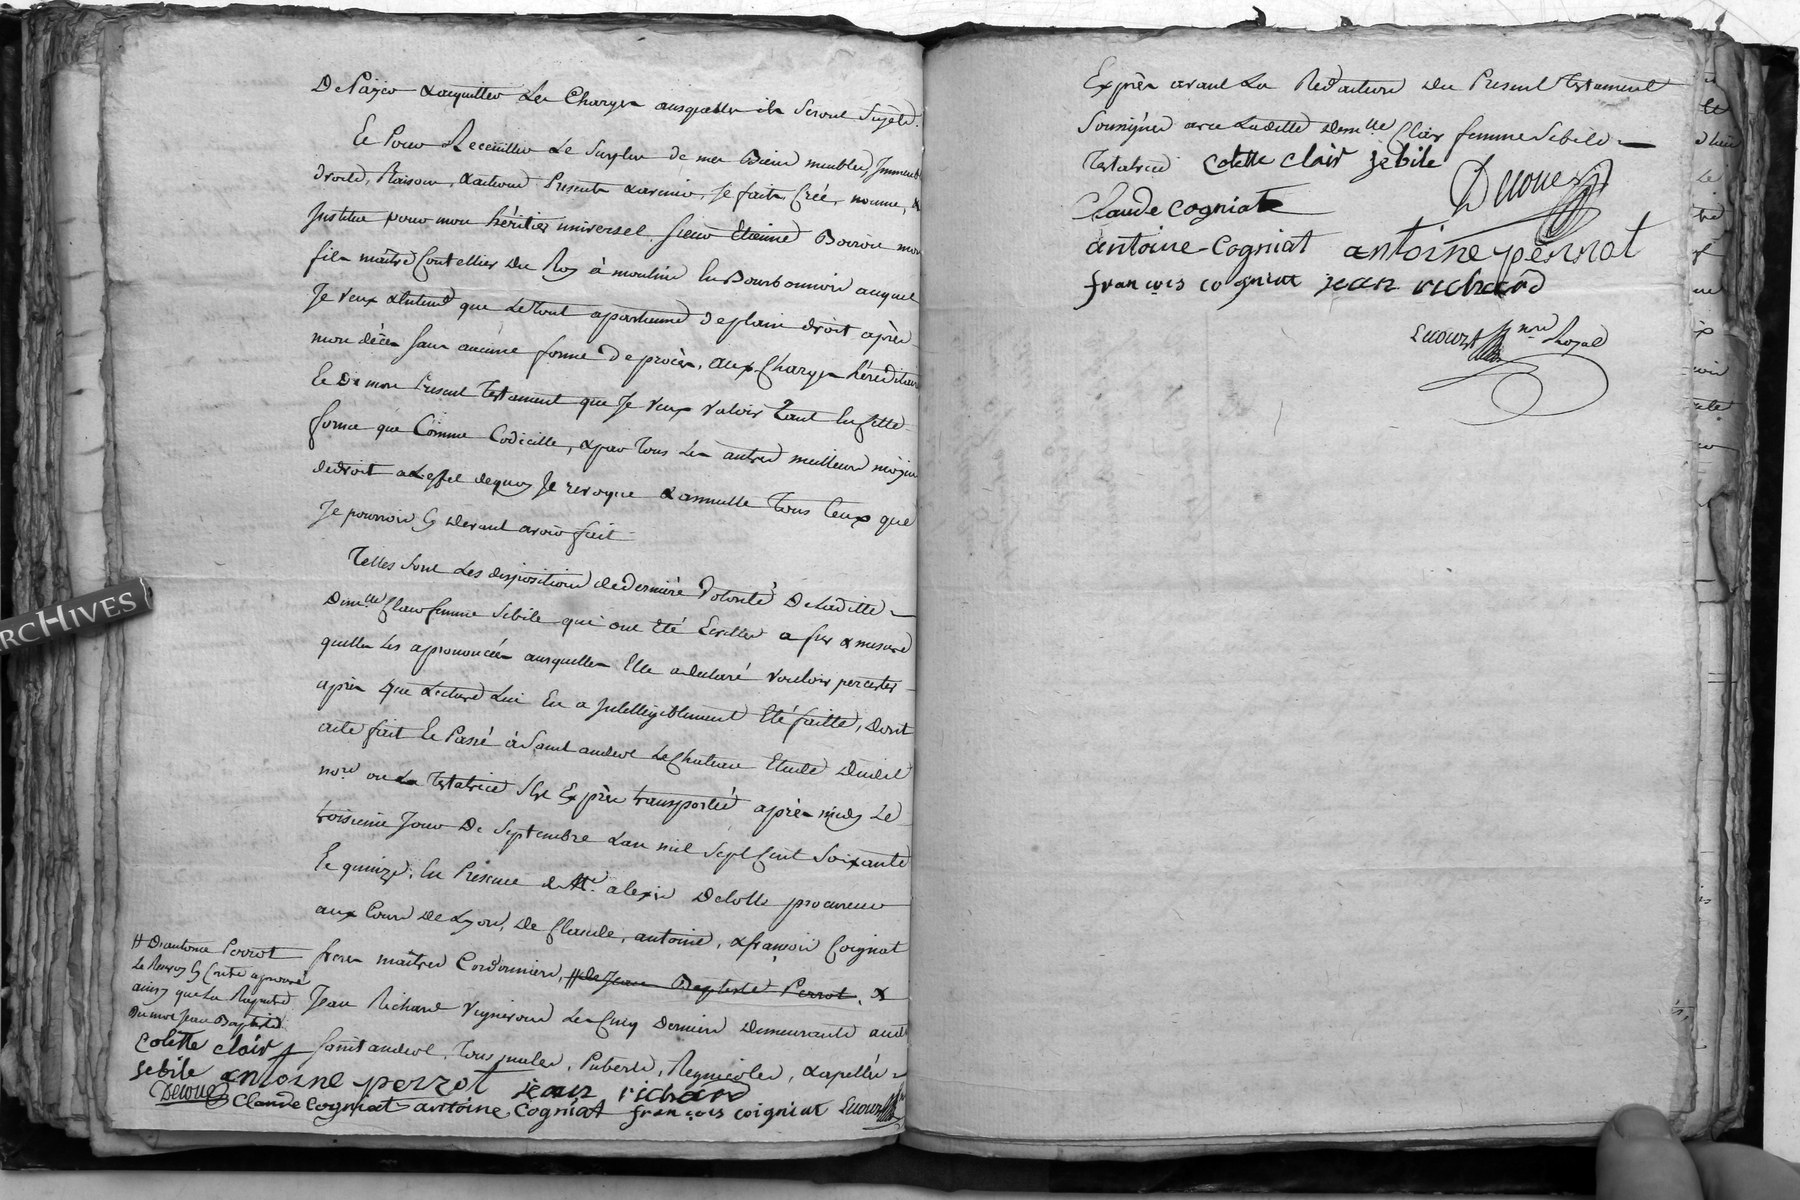 De Payer & acquitter Les Charges ausquelles ils Seront Sujets.
Et Pour Recceuillir Le Surplus de mes Biens meubles, Immeub
droits, Raisons, & actions Presents & avenir, Je fais, Créé, nomme, &
Institue pour mon héritier universel Sieur Etienne Boiron mon
fils maitre Coutellier Du Roy à moulins En Bourbonnois auquel
Je veux & Entend que Le tout apartienne de plain droit après
mon décès sans aucune forme De procès, aux Charges héréditaires
Et De mon Present Testament que Je veux valoir Tant En cette
forme que Comme Codicille, & par Tous Les autres meilleurs moyens
de droit a L'effet de quoy Je revoque & annulle Tous Ceux que
Je pourrois Cy Devant avoir fait
Telles Sont Les dispositions de derniere Volonté De Laditte
Dem.lle Clair femme Sebile qui ont été Ecrittes a fur & mesure
quelle Les a prononcées ausquelles Elle a declaré vouloir percister
après que Lecture Lui En a Intelligiblement Eté faitte, Dont
acte fait Et Passé à Saint andeol Le Chateau Etude Dudit
no.re ou La Testatrice S'est Exprès transportée après midy Le
troisieme Jour De Septembre L'an mil Sept Cent Soixante
Et quinze. En Presence de M.e alexis Decotte procureur
aux Cours De Lyon, De Claude, antoine, & françois Coignat
freres maitres Cordonniers, # de Jean Baptiste Perrot, &
Jean Richard Vignerons Les Cinq Derniers Demeurants aud
Saint andeol, Tous males, Puberes, Regnicoles, & apellés
# D'antoine Perrot
Le Renvoy Cy Contre aprouvé
ainsy que La Rayure
Du mot Jean Baptiste
colette clair
sebile antoine perrot jean richard
claude cogniat antoine cogniat françois coigniat
Exprès avant La Redaction Du Present Testament
Soussignés avec Laditte Dem.lle Clair femme Sebile
Testatrice colette clair sebile
claude cogniat
antoine-cogniat antoine perrot
françois cogniat jean richard
no.re Royal